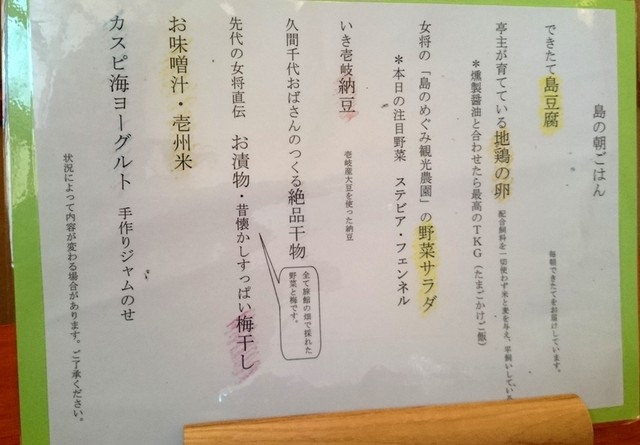 島の朝ごはん
できたて島豆腐 毎朝できたてをお届けしています。
亭主が育てている地鶏の卵 配合飼料を一切使わず米と麦を与え、平飼いしている
＊燻製醤油と合わせたら最高のTKG（たまごかけご飯）
女将の「島のめぐみ観光農園」の野菜サラダ
＊本日の注目野菜 ステビア・フェンネル
いき壱岐納豆 壱岐産大豆を使った納豆
久間千代おばさんのつくる絶品干物
先代の女将直伝 お漬物・昔懐かしすっぱい梅干し
全て旅館の畑で採れた
野菜と梅です。
お味噌汁・壱州米
カスピ海ヨーグルト 手作りジャムのせ
状況によって内容が変わる場合があります。ご了承ください。